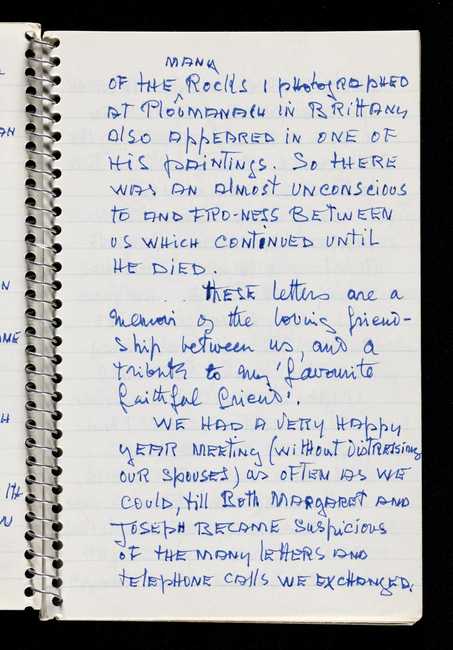 MANY
OF THE ROCKS I photographED
AT PloÜMANACH IN BRITTANY
Also APPEARED IN ONE OF
HIS PAINTINGS. SO THERE
WAS AN Almost UNCONSCIOUS
to AND FRO-NESS BETWEEN
US WHICH CONTINUED UNTIL
HE DIED.
THESE letters are a
memoir of the loving friend-
ship between us, and a
tribute to my 'favourite
faithful friend'.
WE HAD A VERY HAPPY
YEAR MEETING (WITHOUT DISTRESSING
OUR SPOUSES) AS OFTEN AS WE
COULD, till BOTH MARGARET AND
JOSEPH BECAME SUSPICIOUS
OF THE MANY LETTERS AND
telEPHONE CALLS WE EXCHANGED.
AN
N
ME
H
ITH
N